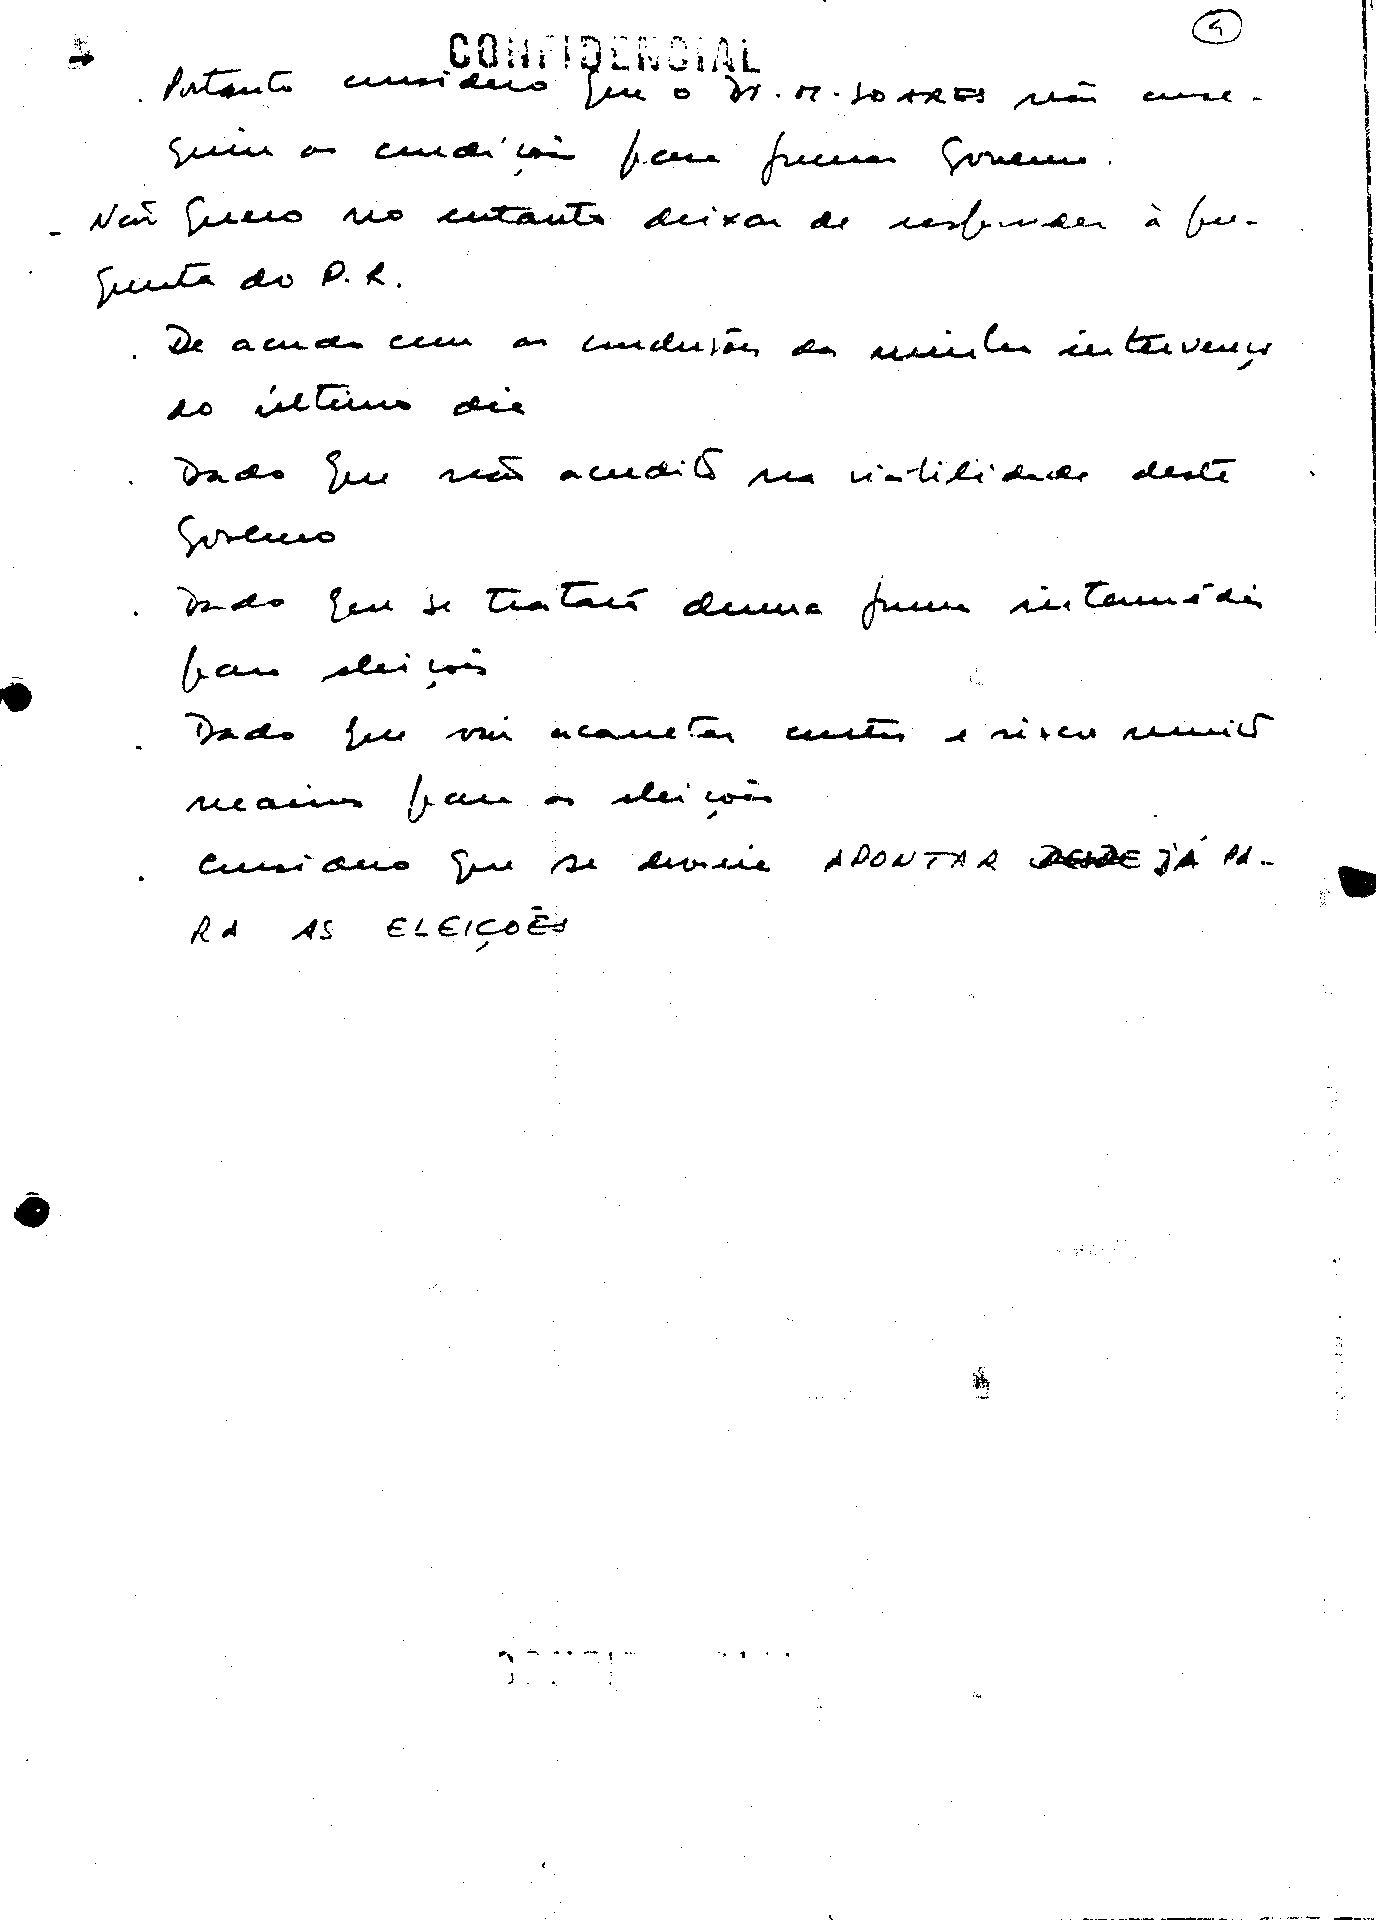 4
CONFIDENCIAL
. Portanto considero que o Dr. M. SOARES não conse-
guiu as condições para formar Governo.
- Não quero no entanto deixar de responder à per-
gunta do P.R.
. De acordo com as conclusões da minha intervenção
do último dia
. Dado que não acredito na viabilidade deste
Governo
. Dado que se tratará duma forma intermédia
para eleições
. Dado que vai acarretar custos e riscos muito
maiores para as eleições
. Considero que se deveria APONTAR DESDE JÁ PA-
RA AS ELEIÇÕES